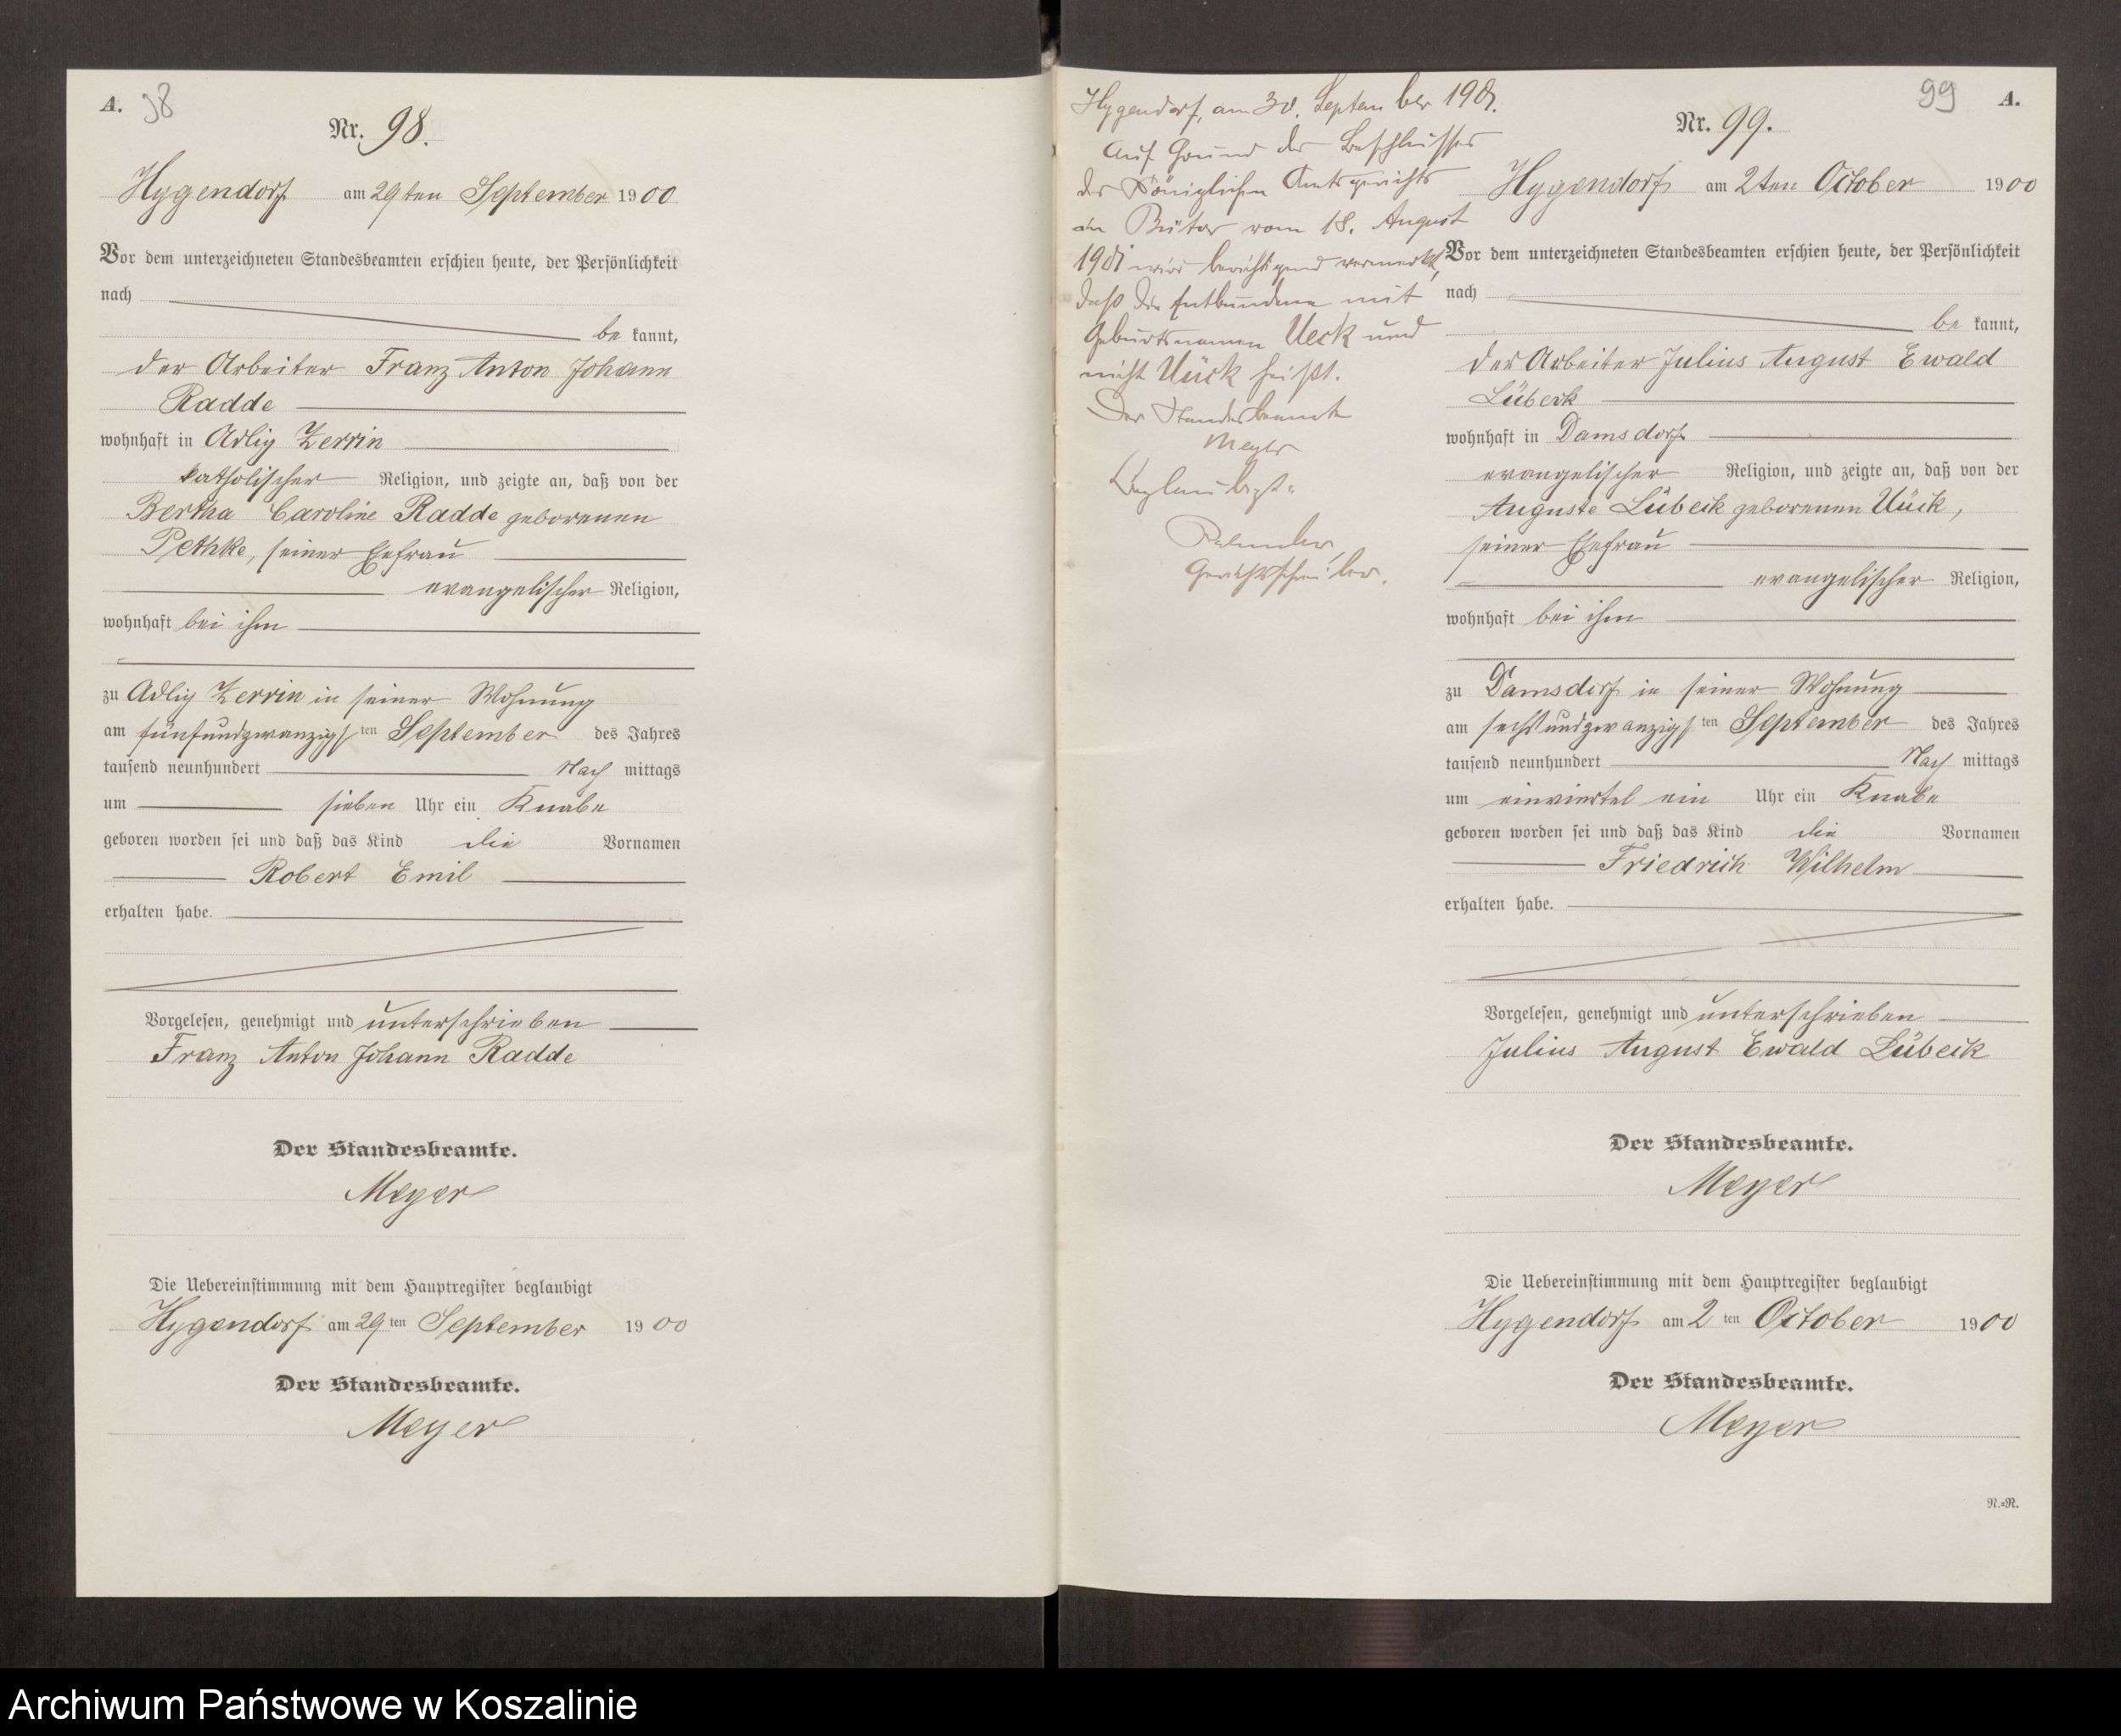 A. 98
Nr. 98.
Hygendorf am 29ten September 1900
Vor dem unterzeichneten Standesbeamten erschien heute, der Persönlichkeit
nach
be kannt,
der Arbeiter Franz Anton Johann
Radde
wohnhaft in Adlig Zerrin
katholischer Religion, und zeigte an, daß von der
Bertha Caroline Radde geborenen
Pethke, seiner Ehefrau
evangelischer Religion,
wohnhaft bei ihm
zu Adlig Zerrin in seiner Wohnung
am fünfundzwanzigsten September des Jahres
tausend neunhundert Nach mittags
um sieben Uhr ein Knabe
geboren worden sei und daß das Kind die Vornamen
Robert Emil
erhalten habe.
Vorgelesen, genehmigt und unterschrieben
Franz Anton Johann Radde
Der Standesbeamte.
Meyer
Die Uebereinstimmung mit dem Hauptregister beglaubigt
Hygendorf am 29ten September 1900
Der Standesbeamte.
Meyer
Hygendorf, am 30. September 1901.
Auf Grund des Beschlusses
des Königlichen Amtsgerichts
in Bütow vom 18. August
1901 wird berichtigend vermerkt,
daß die Entbundene mit
Geburtsnamen Ueck und
nicht Uück heißt.
Der Standesbeamte
Meyer
Beglaubigt.
Gerichtsschreiber.
99 A.
Nr. 99.
Hygendorf am 2ten October 1900
Vor dem unterzeichneten Standesbeamten erschien heute, der Persönlichkeit
nach
be kannt,
der Arbeiter Julius August Ewald
Lübeck
wohnhaft in Damsdorf
evangelischer Religion, und zeigte an, daß von der
Auguste Lübeck geborenen Uück,
seiner Ehefrau
evangelischer Religion,
wohnhaft bei ihm
zu Damsdorf in seiner Wohnung
am sechsundzwanzigsten September des Jahres
tausend neunhundert Nach mittags
um einviertel ein Uhr ein Knabe
geboren worden sei und daß das Kind die Vornamen
Friedrich Wilhelm
erhalten habe.
Vorgelesen, genehmigt und unterschrieben
Julius August Ewald Lübeck
Der Standesbeamte.
Meyer
Die Uebereinstimmung mit dem Hauptregister beglaubigt
Hygendorf am 2ten October 1900
Der Standesbeamte.
Meyer
N.=R.
Archiwum Państwowe w Koszalinie